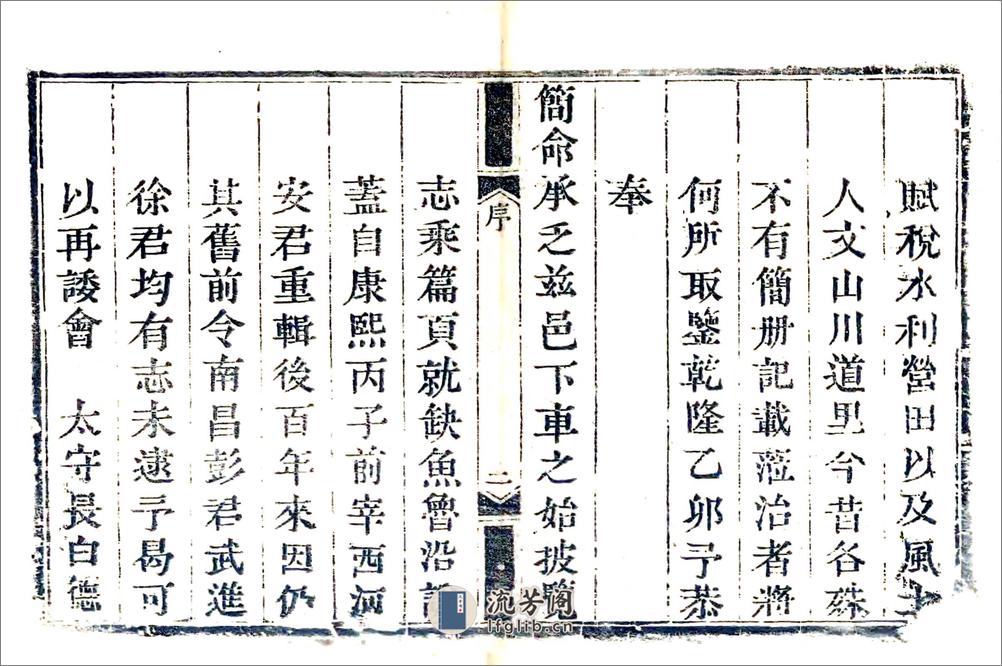 賦稅水利營田以及風土
人文山川道里今昔各殊
不有簡册記載蒞治者將
何所取鑒乾隆乙卯予恭
奉
簡命承乏兹邑下車之始披覽
序
二
志乘篇頁就缺魚魯沿訛
蓋自康熙丙子前宰西河
安君重輯後百年來因仍
其舊前令南昌彭君武進
徐君均有志未逮予曷可
以再諉會 太守長白德
流芳阁
lfglib.cn